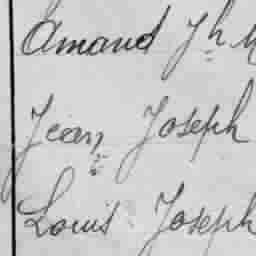 Amand Jh
Jean Joseph
Louis Joseph